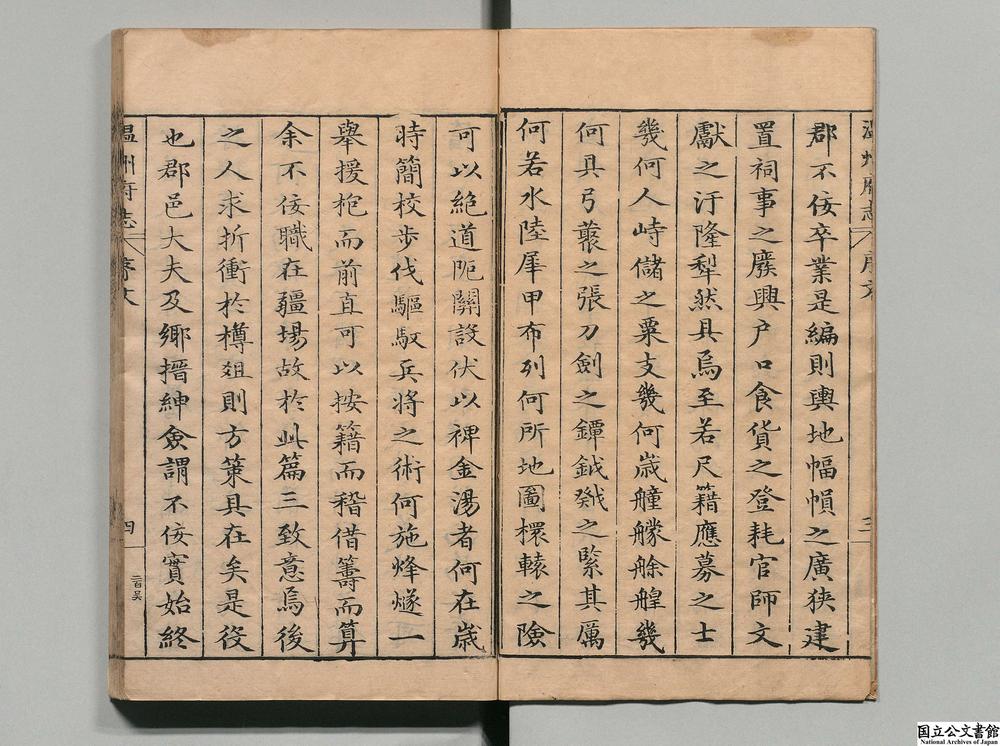 郡不佞卒業是編則輿地幅幀之廣狹建
置祠事之廢興户口食貨之登耗官師文
獻之汙隆犁然具焉至若尺籍應募之士
幾何人峙儲之粟支幾何歲艟艨艅艎幾
何具弓蘘之張刀劍之鐔鉞之綮其厲
何若水陸犀甲布列何所地圖轘轅之險
可以絶道阨關設伏以裨金湯者何在歲
時簡校步伐驅馭兵將之術何施烽燧一
舉援枹而前直可以按籍而稽借籌而算
余不佞職在疆場故於此篇三致意焉後
之人求折衝於樽俎則方策具在矣是役
也郡邑大夫及鄉搢紳僉謂不佞實始終
温州府志 序文 三
温州府志 序文 四
国立公文書館
National Archives of Japan